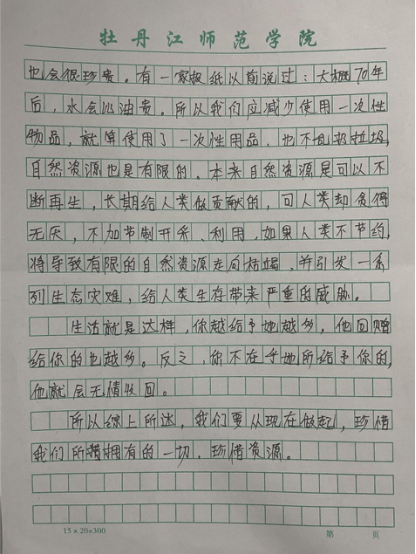 牡丹江师范学院
也会很珍贵。有一家报纸以前说过：大概70年
后，水会比油贵。所以我们应减少使用一次性
物品，就算使用了一次性用品，也不乱扔垃圾，
自然资源也是有限的。本来自然资源是可以不
断再生，长期给人类做贡献的，可人类却贪得
无厌，不加节制开采、利用，如果人类不节约，
将导致有限的自然资源走向枯竭，并引发一系
列生态灾难，给人类生存带来严重的威胁。
生活就是这样，你越给予她越多，他回赠
给你的也越多。反之，你不在乎她所给予你的，
他就会无情收回。
所以综上所述，我们要从现在做起，珍惜
我们所拥有的一切，珍惜资源。
15×20=300
第 页